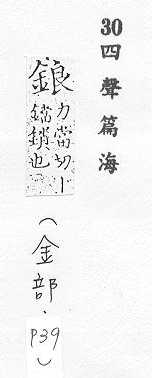 30四聲篇海
鋃力當切
鐺鎖也
(金部、P39)